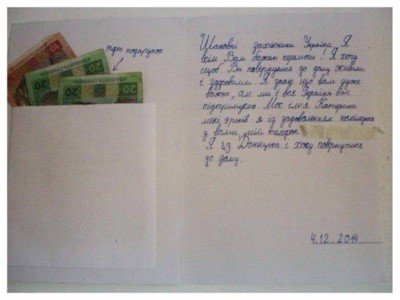 20
20
20
МІЙ подарунок
Шановні захисники України, Я
всім Вам бажаю перемоги! Я хочу
щоб Ви повернулися до дому живими
і здоровими. Я знаю що вам дуже
важко, але ми і вся Україна вас
підтримуємо. Моє ім'я Катерина
мені 9років я із задоволенням поспілкуюся
з вами, мій телефон
Я із Донецька і хочу повернутися
до дому.
4.12.2014